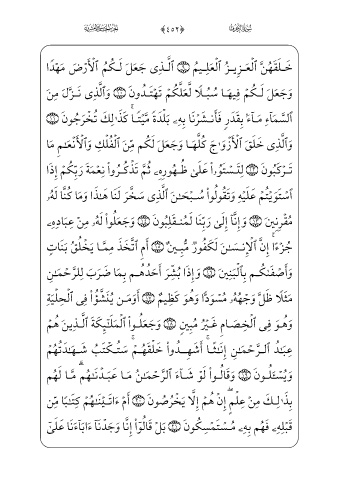 خَلَقَهُنَّ ٱلْعَزِيزُ ٱلْعَلِيمُ ۝ ٱلَّذِى جَعَلَ لَكُمُ ٱلْأَرْضَ مَهْدًا
وَجَعَلَ لَكُمْ فِيهَا سُبُلًا لَّعَلَّكُمْ تَهْتَدُونَ ۝ وَٱلَّذِى نَزَّلَ مِنَ
ٱلسَّمَآءِ مَآءًۢ بِقَدَرٍ فَأَنشَرْنَا بِهِۦ بَلْدَةً مَّيْتًا ۚ كَذَٰلِكَ تُخْرَجُونَ ۝
وَٱلَّذِى خَلَقَ ٱلْأَزْوَٰجَ كُلَّهَا وَجَعَلَ لَكُم مِّنَ ٱلْفُلْكِ وَٱلْأَنْعَٰمِ مَا
تَرْكَبُونَ ۝ لِتَسْتَوُۥا۟ عَلَىٰ ظُهُورِهِۦ ثُمَّ تَذْكُرُوا۟ نِعْمَةَ رَبِّكُمْ إِذَا
ٱسْتَوَيْتُمْ عَلَيْهِ وَتَقُولُوا۟ سُبْحَٰنَ ٱلَّذِى سَخَّرَ لَنَا هَٰذَا وَمَا كُنَّا لَهُۥ
مُقْرِنِينَ ۝ وَإِنَّآ إِلَىٰ رَبِّنَا لَمُنقَلِبُونَ ۝ وَجَعَلُوا۟ لَهُۥ مِنْ عِبَادِهِۦ
جُزْءًا ۚ إِنَّ ٱلْإِنسَٰنَ لَكَفُورٌ مُّبِينٌ ۝ أَمِ ٱتَّخَذَ مِمَّا يَخْلُقُ بَنَاتٍ
وَأَصْفَىٰكُم بِٱلْبَنِينَ ۝ وَإِذَا بُشِّرَ أَحَدُهُم بِمَا ضَرَبَ لِلرَّحْمَٰنِ
مَثَلًا ظَلَّ وَجْهُهُۥ مُسْوَدًّا وَهُوَ كَظِيمٌ ۝ أَوَمَن يُنَشَّؤُا۟ فِى ٱلْحِلْيَةِ
وَهُوَ فِى ٱلْخِصَامِ غَيْرُ مُبِينٍ ۝ وَجَعَلُوا۟ ٱلْمَلَٰٓئِكَةَ ٱلَّذِينَ هُمْ
عِبَٰدُ ٱلرَّحْمَٰنِ إِنَٰثًا ۚ أَشَهِدُوا۟ خَلْقَهُمْ ۚ سَتُكْتَبُ شَهَٰدَتُهُمْ
وَيُسْـَٔلُونَ ۝ وَقَالُوا۟ لَوْ شَآءَ ٱلرَّحْمَٰنُ مَا عَبَدْنَٰهُم ۗ مَّا لَهُم
بِذَٰلِكَ مِنْ عِلْمٍ ۖ إِنْ هُمْ إِلَّا يَخْرُصُونَ ۝ أَمْ ءَاتَيْنَٰهُمْ كِتَٰبًا مِّن
قَبْلِهِۦ فَهُم بِهِۦ مُسْتَمْسِكُونَ ۝ بَلْ قَالُوٓا۟ إِنَّا وَجَدْنَآ ءَابَآءَنَا عَلَىٰٓ